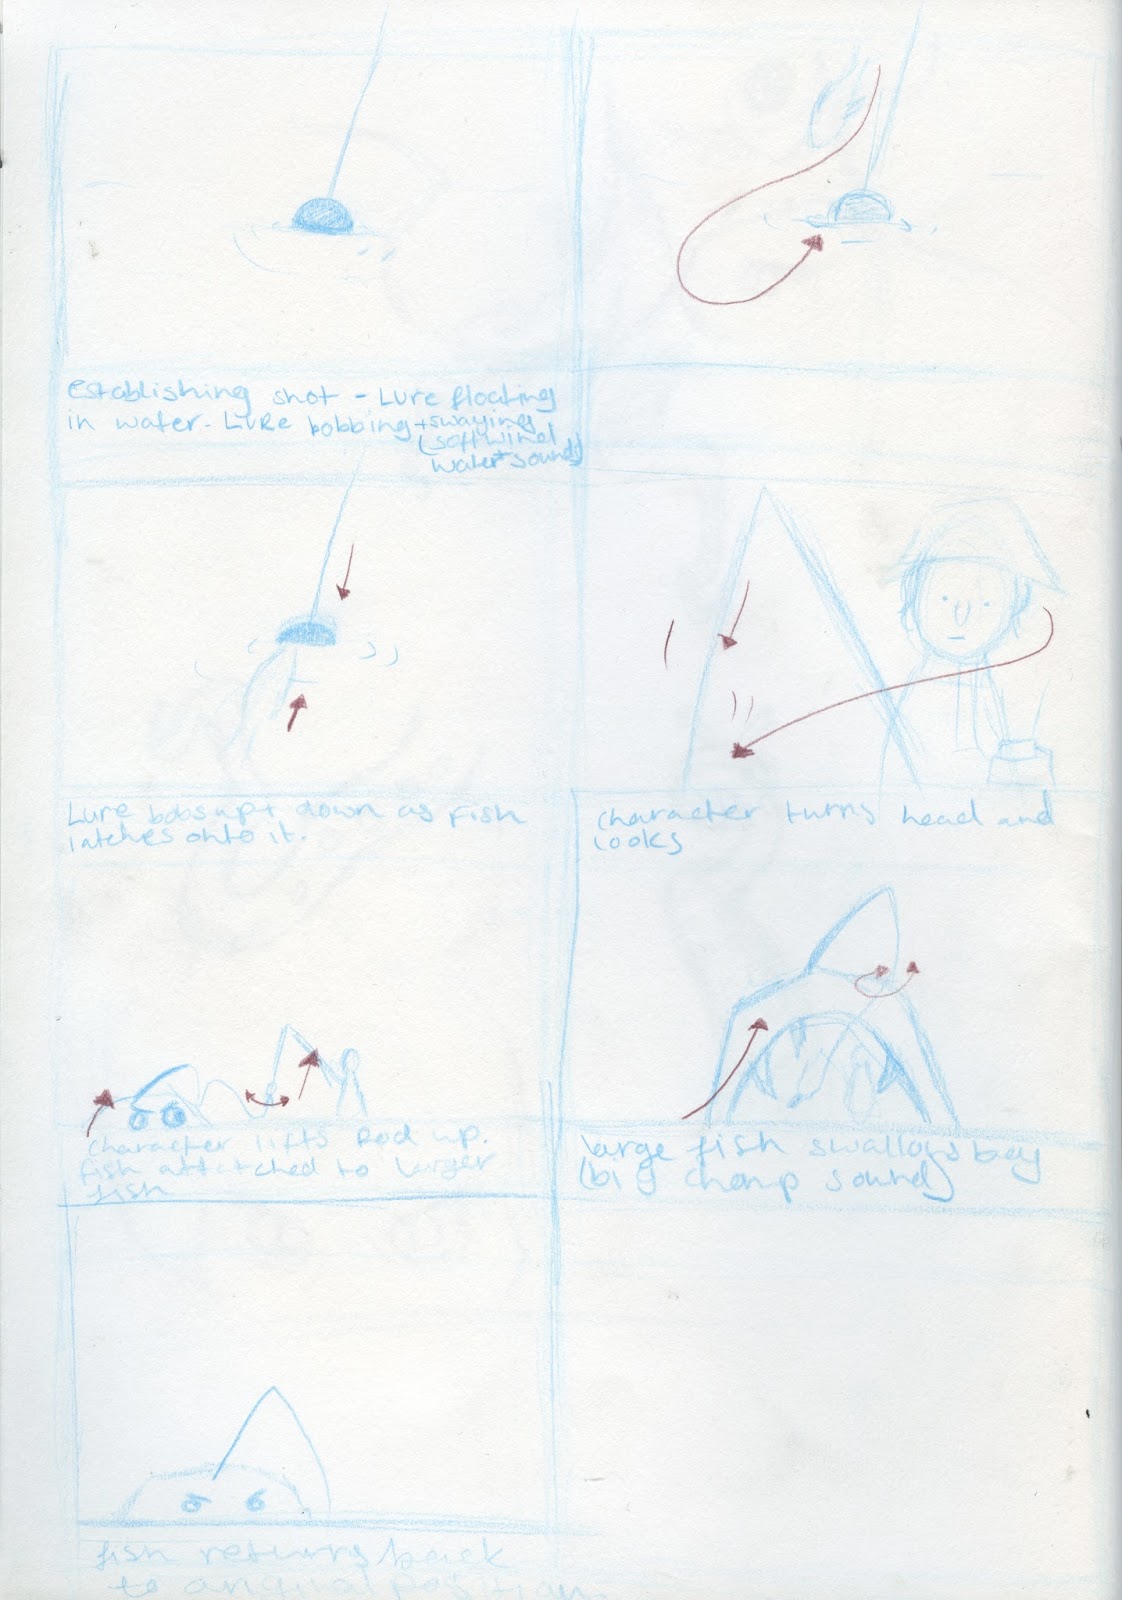 establishing shot - Lure floating
in water. Lure bobbing + swaying
(soft wind
water + sounds)
Lure bobs up + down as fish
latches onto it.
character turns head and
looks
character lifts Rod up.
fish attatched to larger
fish
large fish swallows boy
(big chomp sound)
fish returns back
to original position